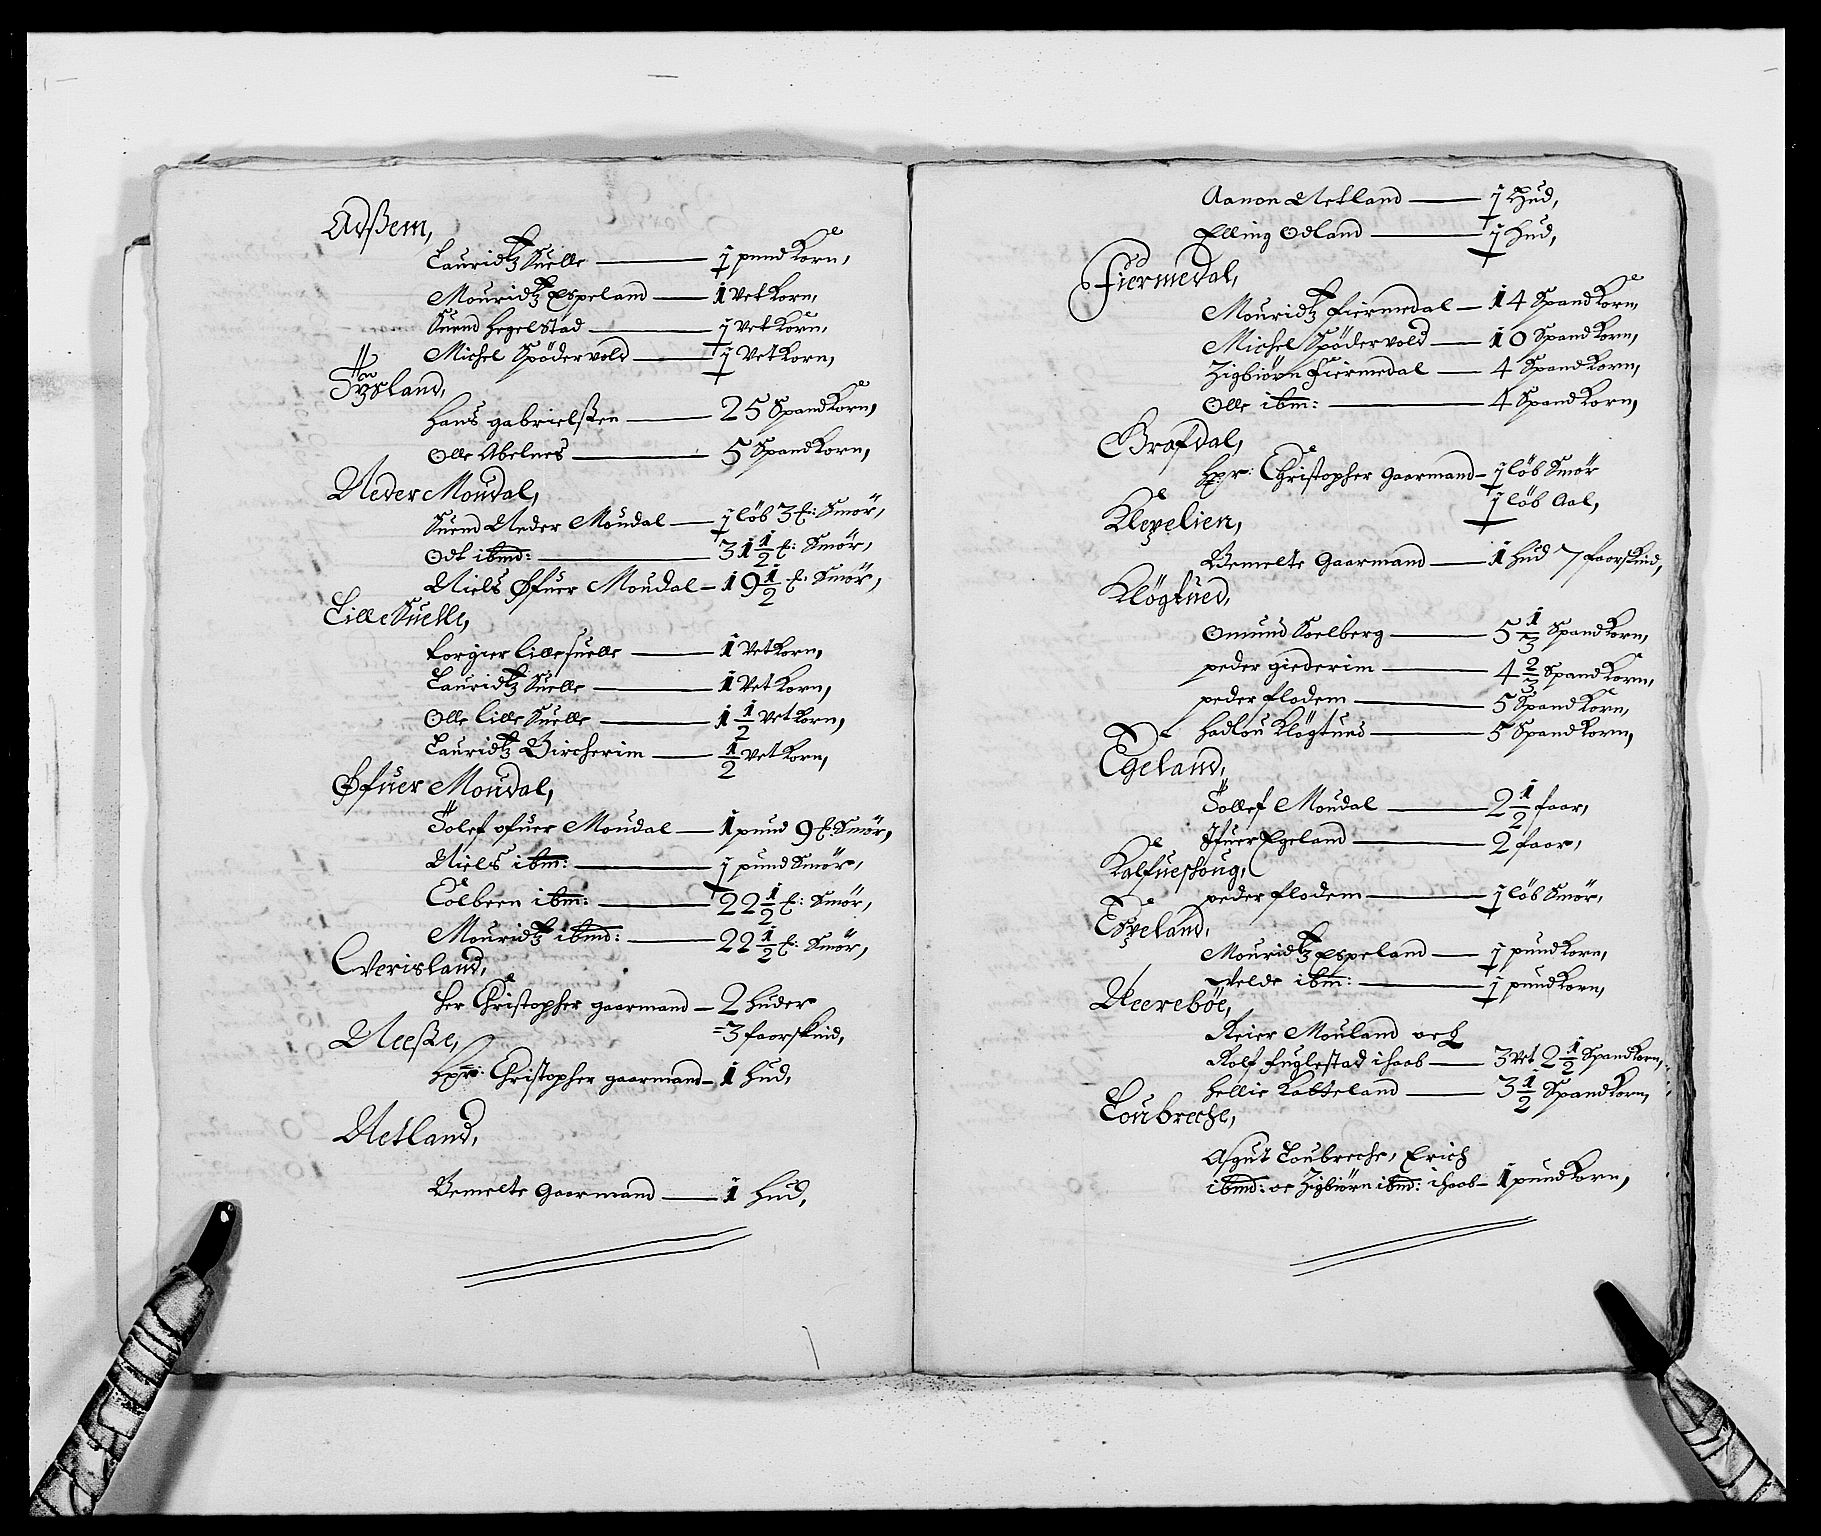 Adßem,
Lauridtz Suelle — 1 pund Korn,
Mouridtz Espeland — 1 Vet Korn,
Suend Hegelstad — 1 Vet Korn,
Michel Spödervold — 1 Vet Korn,
Tyßland,
Hans gabrielßen — 25 Spand Korn,
Olle Abelnes — 5 Spand Korn,
Neder Moudal,
Suend Neder Moudal — 1 löb 3 ℔: Smör,
Odt ibmd: — 31 1/2 ℔: Smör,
Niels Øfuer Moudal — 19 1/2 ℔: Smör,
Lille Suelle,
Torgier lille suelle — 1 Vet Korn,
Lauridtz Suelle — 1 Vet Korn,
Olle lille Suelle — 1 1/2 Vet Korn,
Lauridtz Bircherim — 1/2 Vet Korn,
Øfuer Moudal,
Tolef ofuer Moudal — 1 pund 9 ℔ Smör,
Niels ibm: — 1 pund Smör,
Colbeen ibm: — 22 1/2 ℔: Smör,
Mouridtz ibmd: — 22 1/2 ℔: Smör,
Everisland,
Her Christopher gaarmand — 2 Huder
= 3 faarskind,
Neeße,
Hpr: Christopher gaarmand — 1 Hud,
Netland,
Bemelte Gaarmand — 1 Hud,
Aanon Netland — 1 Hud,
Elling Odland — 1 Hud,
Fiermedal,
Mouridtz Fiermedal — 14 Spand Korn,
Michel Spödervold — 10 Spand Korn,
Zigbiörn Fiermedal — 4 Spand Korn,
Olle ibm: — 4 Spand Korn,
Grafdal,
Hpr: Christopher Gaarmand — 1 löb Smör
1 löb Aal,
Klepelien,
Bemelte Gaarmand — 1 Hud 7 faarskind,
Klögtued,
Omund Soelberg — 5 1/3 Spand Korn,
peder giederim — 4 2/3 Spand Korn,
peder flodem — 5 Spand Korn,
Hadlou Klögtued — 5 Spand Korn,
Egeland,
Tollef Moudal — 2 1/2 faar,
Ifuer Egeland — 2 faar,
Kalfueshoug,
peder flodem — 1 löb Smör,
Espeland,
Mouridtz Espeland — 1 pund Korn,
Velde ibm: — 1 pund Korn,
Neereböe,
Reier Mouland och
Rolf fuglestad ihaab — 3 Vet 2 1/2 Spand Korn,
Hellie Katteland — 3 1/2 Spand Korn,
Loubreche,
Asgut Loubreche, Erich
ibmd: oc Zigbiörn ibmd: ihaab — 1 pund Korn,